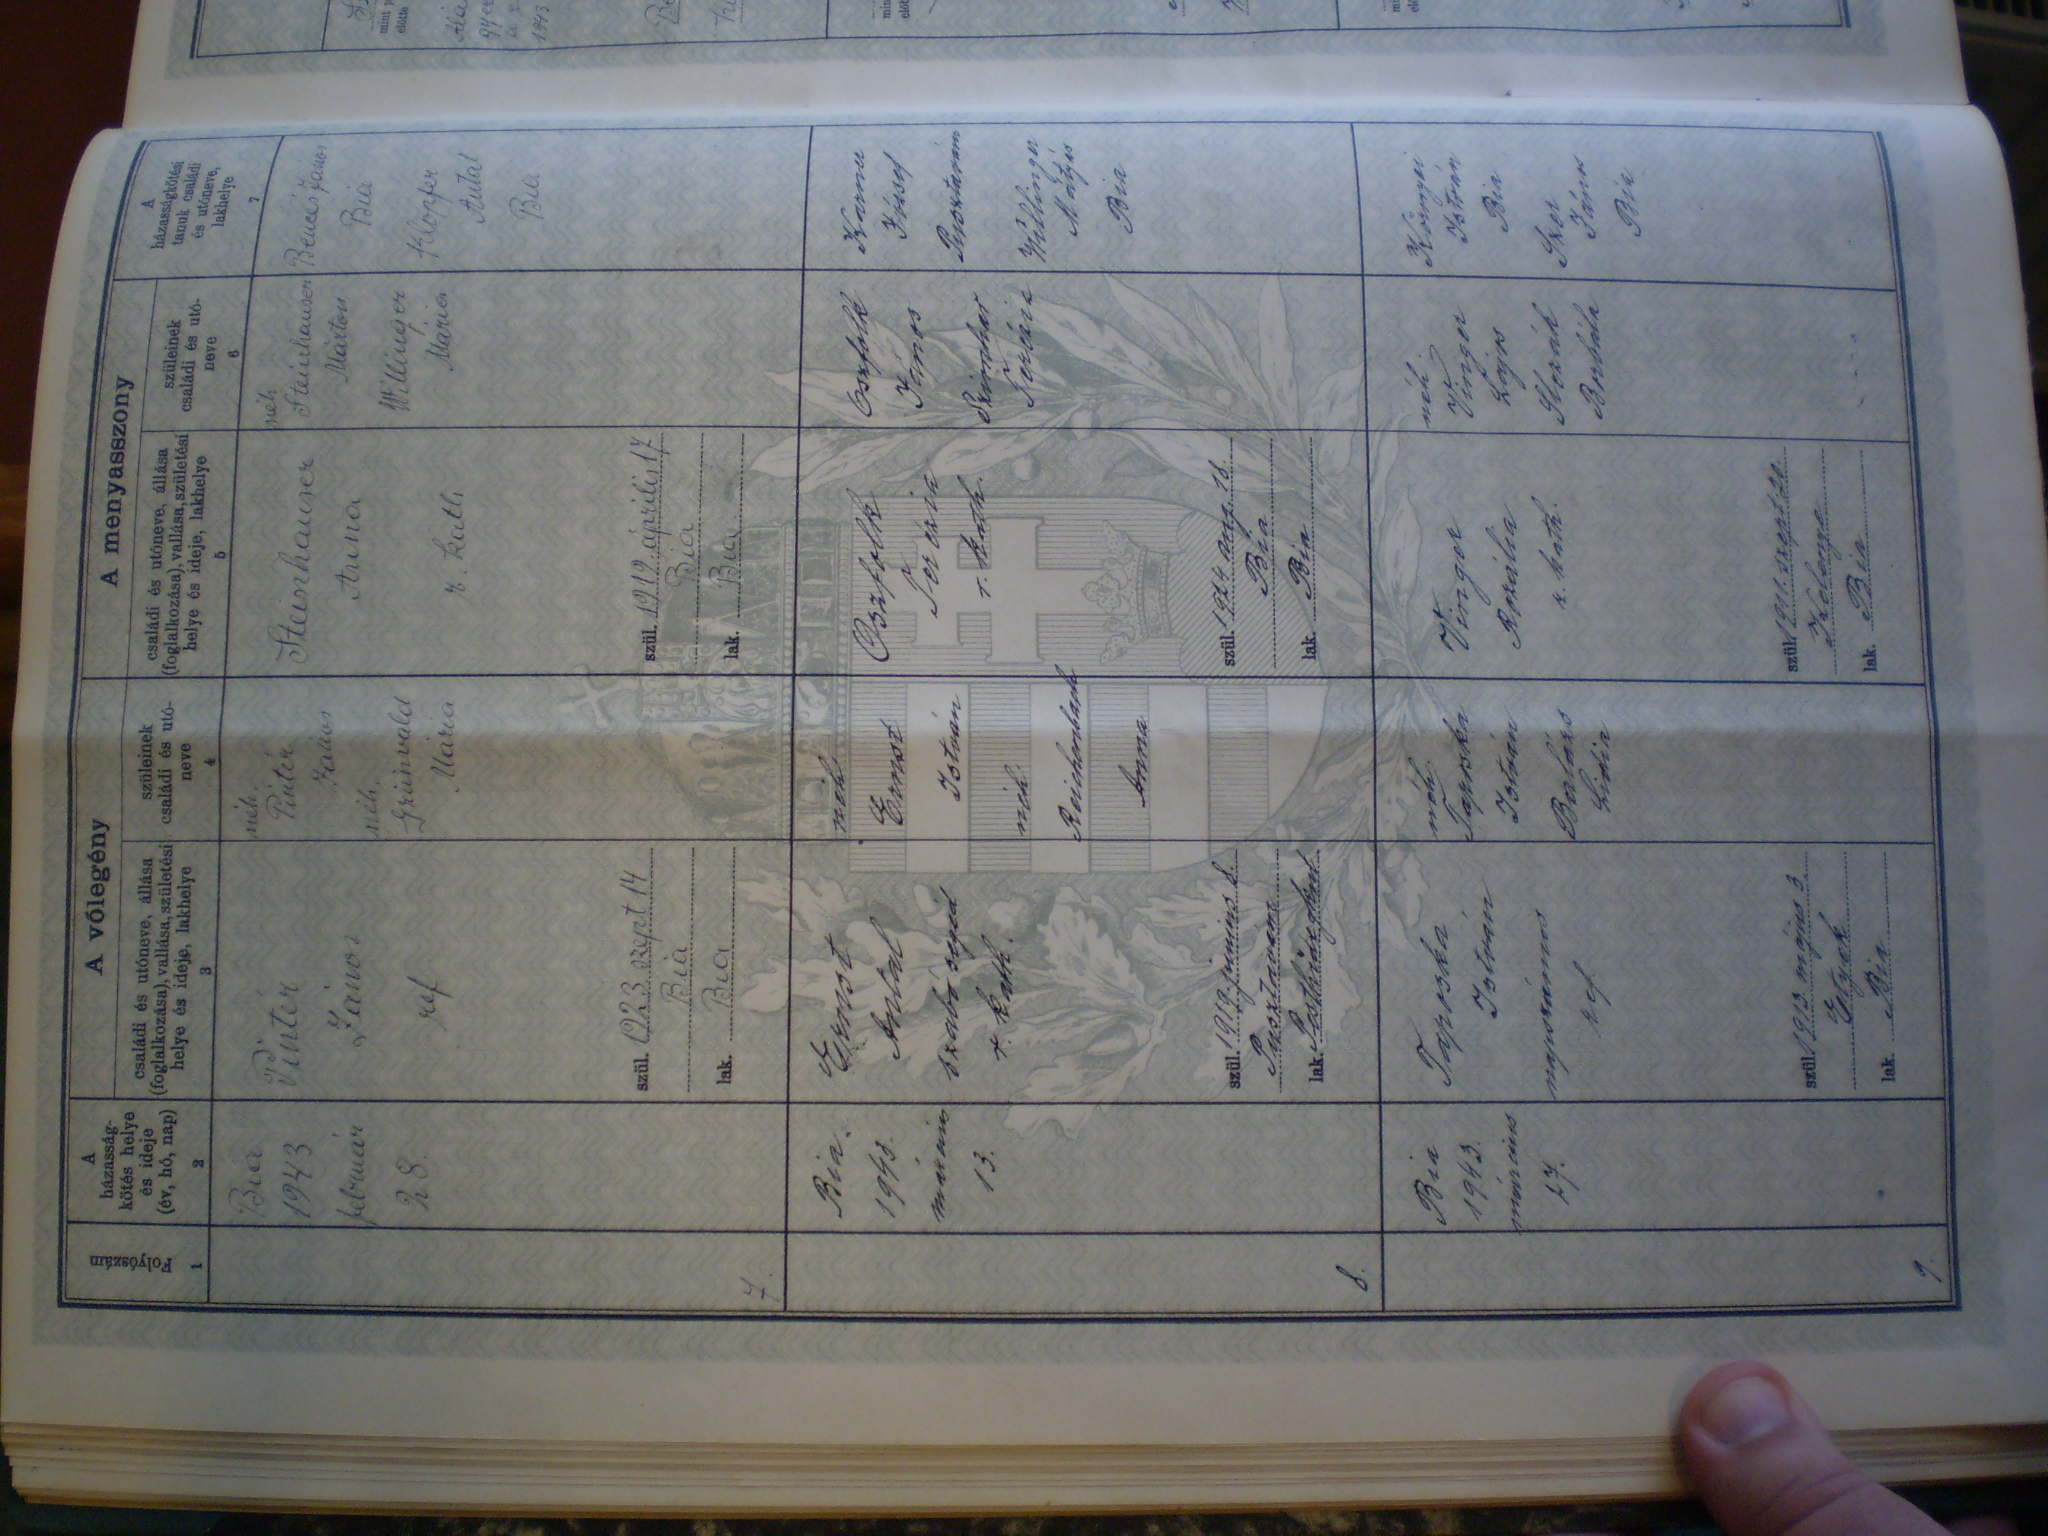 A vőlegény
A menyasszony
Folyószám
1
A
házasság-
kötés helye
és ideje
(év, hó, nap)
2
családi és utóneve, állása
(foglalkozása), vallása, születési
helye és ideje, lakhelye
3
szüleinek
családi és utó-
neve
4
családi és utóneve, állása
(foglalkozása), vallása, születési
helye és ideje, lakhelye
5
szüleinek
családi és utó-
neve
6
A
házasságkötési
tanuk családi
és utóneve,
lakhelye
7
7.
Bia
1943
február
28.
Pintér
János
ref
szül. 1923 szept 14
Bia
lak. Bia
néh.
Pintér
János
néh.
Grünvald
Mária
Steinhauser
Anna
r. kath
szül. 1919. április 17
Bia
lak. Bia
néh
Steinhauser
Márton
Willinger
Mária
Bencés János
Bia
Klopfer
Antal
Bia
8.
Bia.
1943.
március
13.
Ernszt
Antal
szabó segéd
r. kath.
szül. 1919. junius 8.
lak.
néh.
Ernszt
István
néh.
Reichenbach
Anna
Oszfolk
Teréz
r. kath.
szül. 1924. aug. 18.
Bia
lak. Bia
Oszfolk
János
Teréz
József
Mátyás
Bia
9.
Bia
1943.
március
27.
Taposka
István
ref
szül. 1913 május 3
Etyek
lak. Bia
néh.
Taposka
István
Balázs
Lidia
Vinger
Rozália
r. kath.
szül. 1921. szept. 20.
Zebegény
lak. Bia
néh.
Vinger
Lajos
Slezák
Borbála
Környei
István
Bia
János
Bia